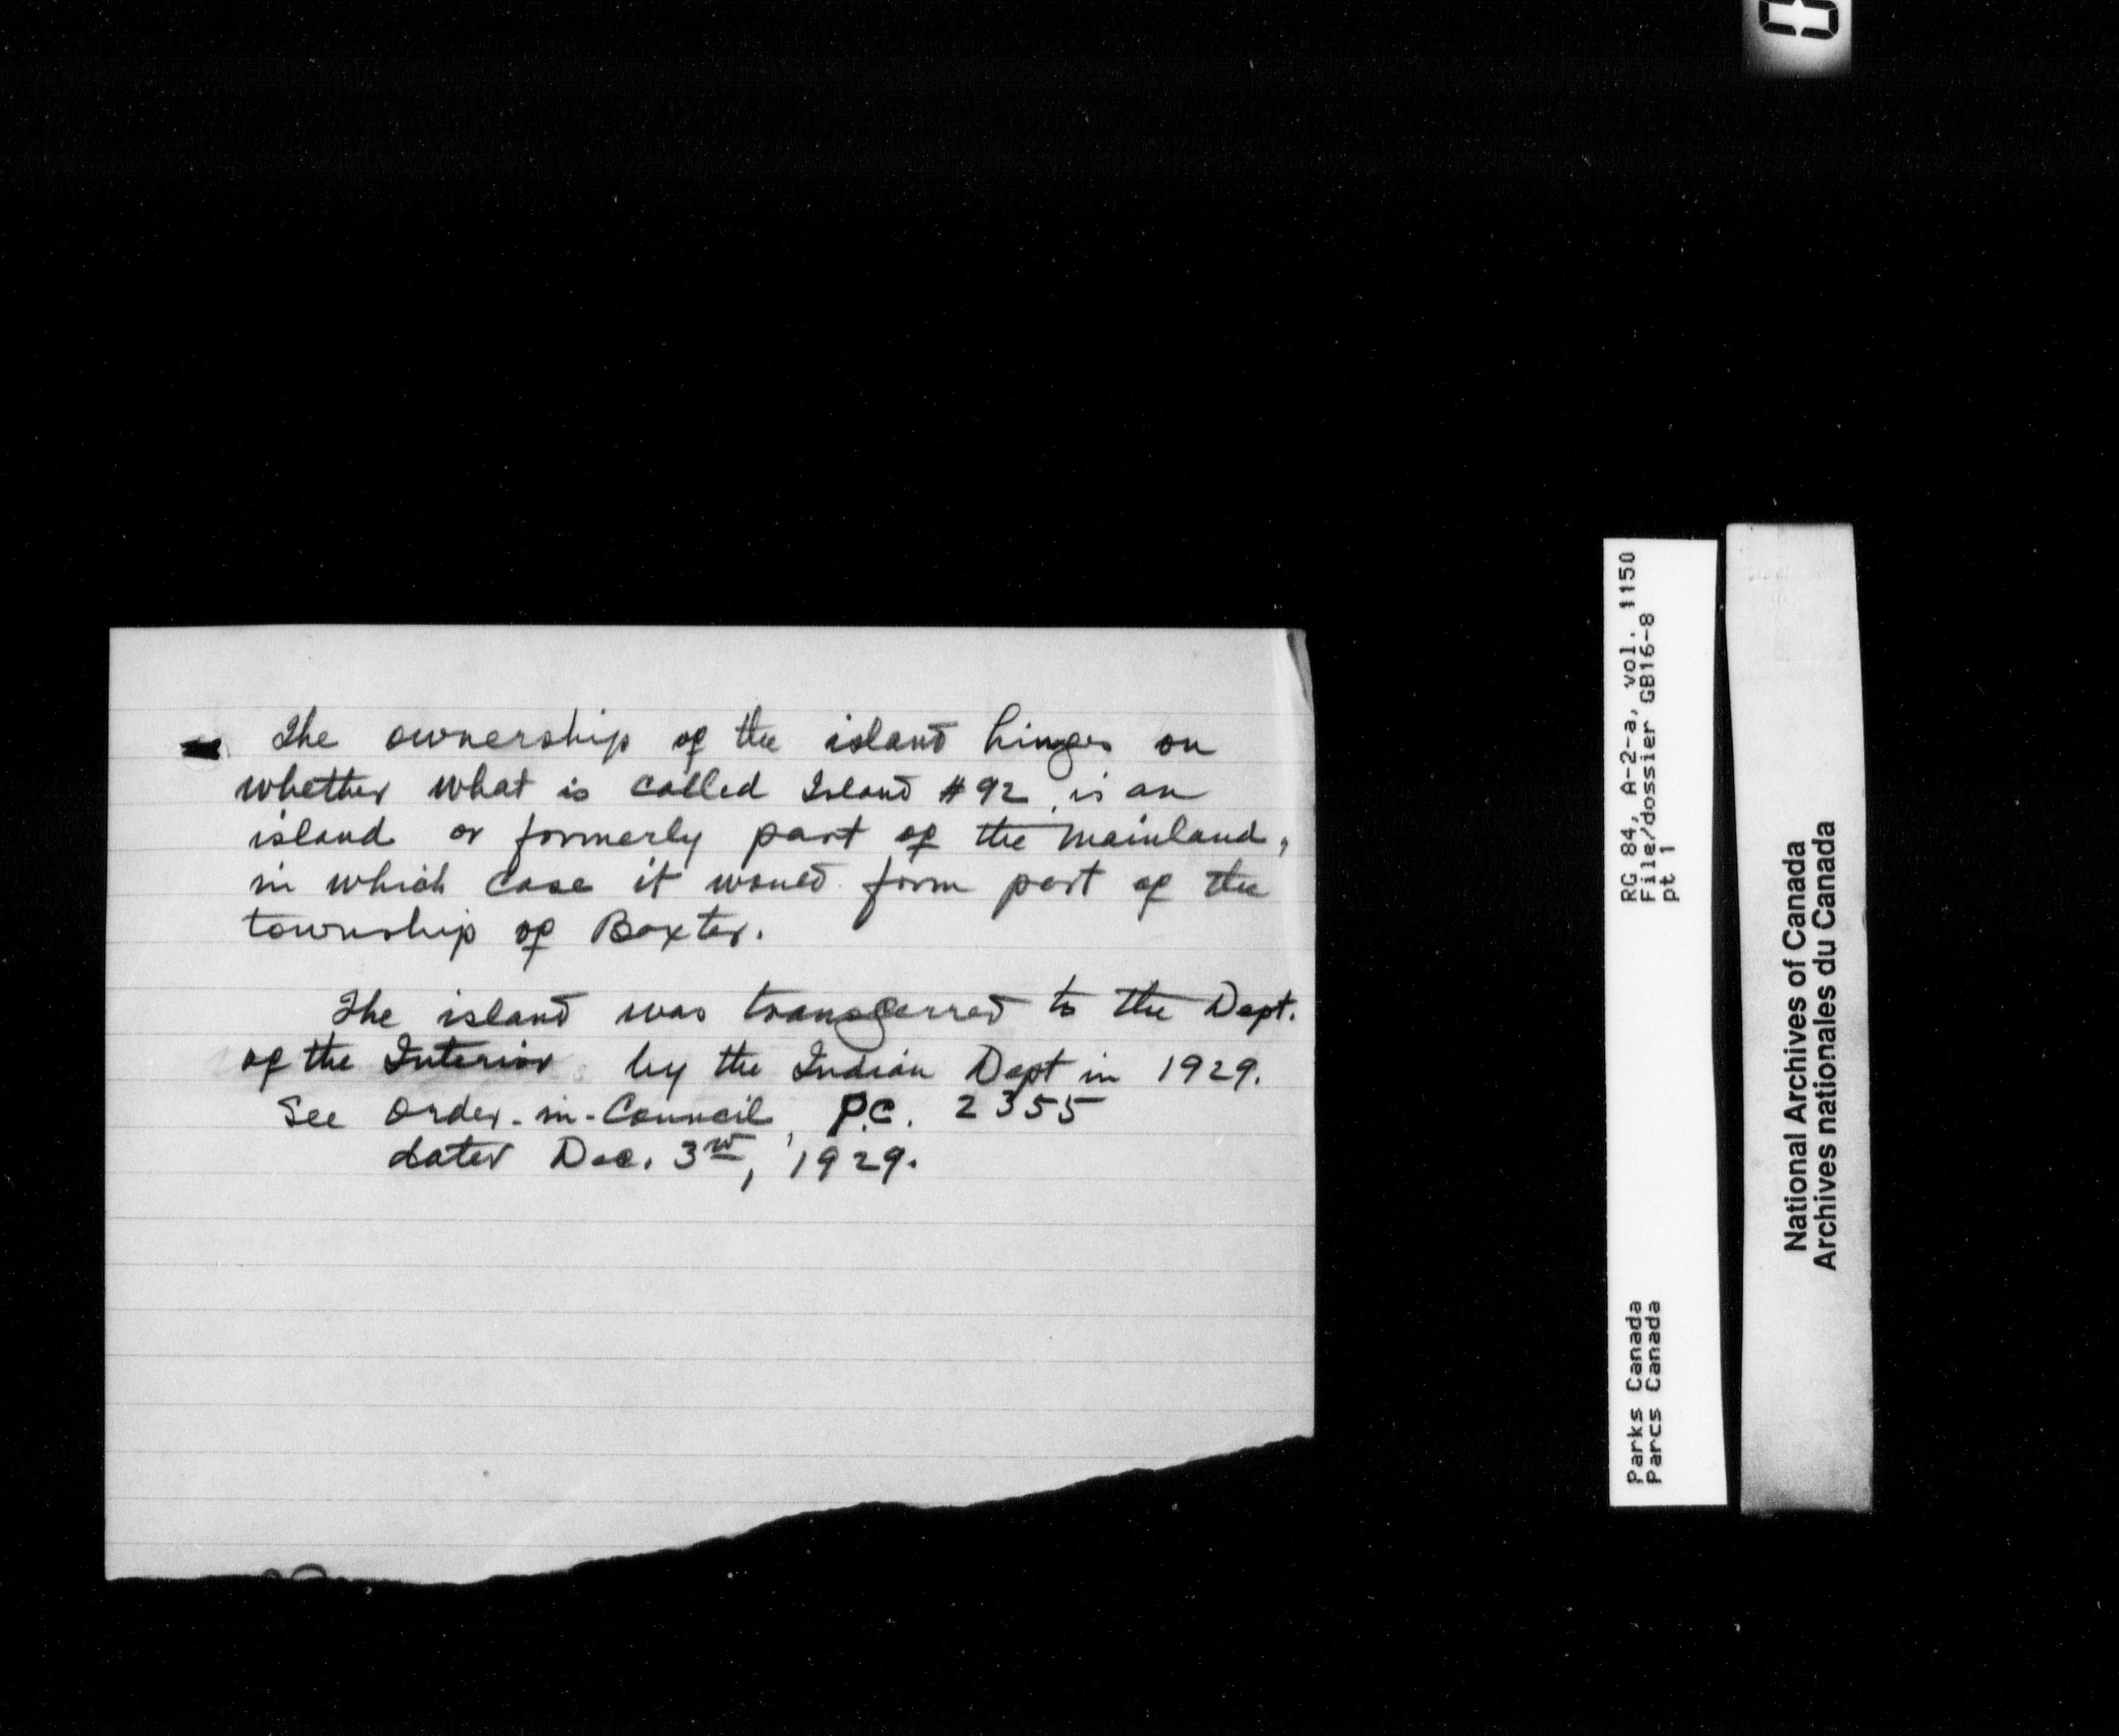 The ownership of the island hinges on
whether what is called Island #92 is an
island or formerly part of the mainland,
in which case it would form part of the
township of Baxter.
The island was transferred to the Dept.
of the Interior by the Indian Dept in 1929.
See Order-in-Council, P.C. 2355
dated Dec. 3rd, 1929.
RG 84, A-2-a, vol. 1150
File/dossier GB16-8
pt 1
Parks Canada
Parcs Canada
National Archives of Canada
Archives nationales du Canada